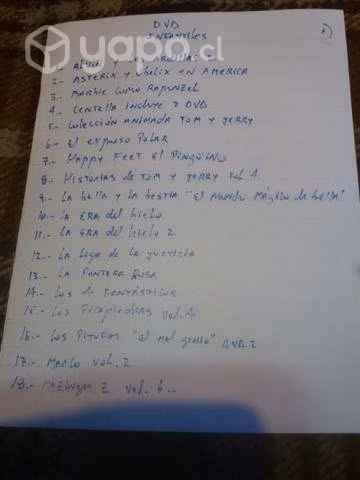 DVD
INFANTILES
1)
yapo.cl
1.- Alvin y las Ardillas
2.- Asterix y Obelix en America
3.- Barbie como Rapunzel
4.- Centella incluye 2 DVD
5.- Colección Animada Tom y Jerry
6.- El expreso Polar
7.- Happy Feet el Pingüino
8.- Historias de Tom y Jerry vol 1.
9.- La bella y la bestia "El mundo Mágico de bella"
10.- La ERA del hielo
11.- La ERA del hielo 2
12.- La liga de la Justicia
13.- La Pantera Rosa
14.- Los 4 Fantásticos
15.- Los Picapiedras vol. 4
16.- Los Pitufos "al mal genio" DVD 2
17.- Marco vol. 2
18.- Mazinger Z vol. 6..